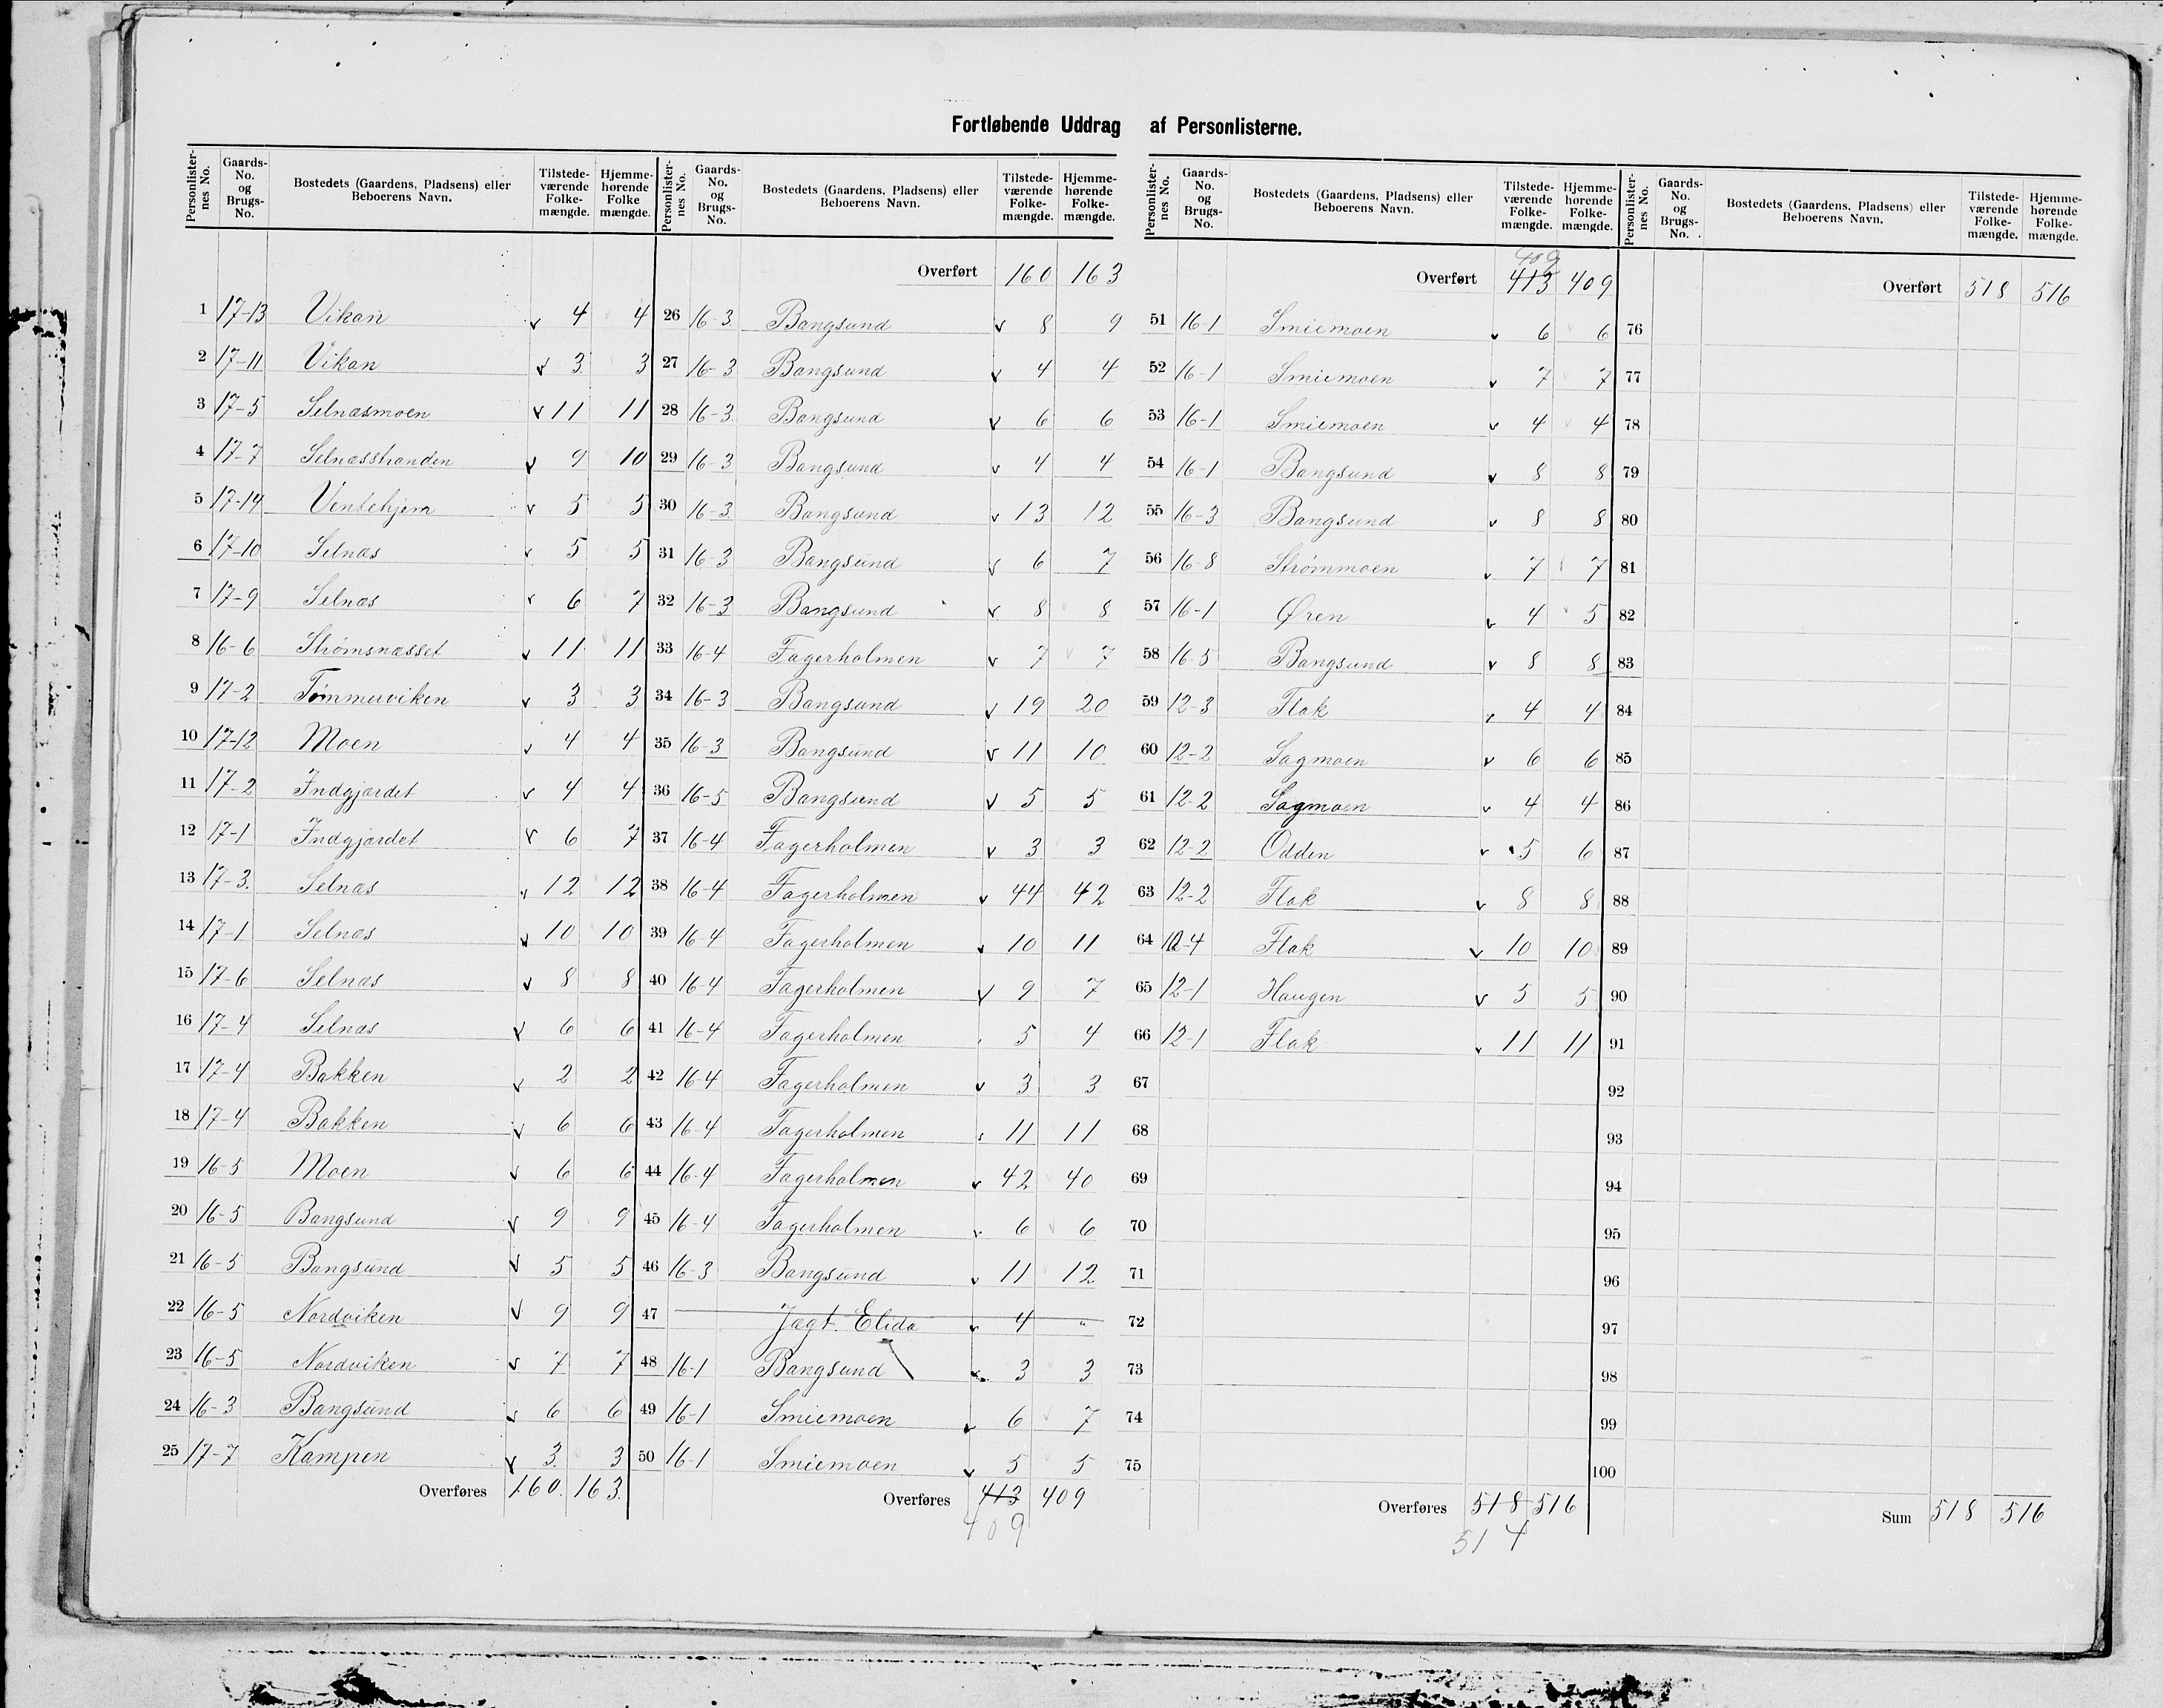 Fortløbende Uddrag af Personlisterne.
Personlister-nes No. Gaards-No. og Brugs-No. Bostedets (Gaardens, Pladsens) eller Beboerens Navn. Tilstede-værende Folke-mængde. Hjemme-hørende Folke mængde.
1 17-13 Vikan v 4 4
2 17-11 Vikan v 3 3
3 17-5 Selnæsmoen v 11 11
4 17-7 Selnæsstranden v 9 10
5 17-14 Ventehjem v 5 5
6 17-10 Selnæs v 5 5
7 17-9 Selnæs v 6 7
8 16-6 Strømsnæsset v 11 11
9 17-2 Tømmerviken v 3 3
10 17-12 Moen v 4 4
11 17-2 Indgjærdet v 4 4
12 17-1 Indgjærdet v 6 7
13 17-3. Selnæs v 12 12
14 17-1 Selnæs v 10 10
15 17-6 Selnæs v 8 8
16 17-4 Selnæs v 6 6
17 17-4 Bakken v 2 2
18 17-4 Bakken v 6 6
19 16-5 Moen v 6 6
20 16-5 Bangsund v 9 9
21 16-5 Bangsund v 5 5
22 16-5 Nordviken v 9 9
23 16-5 Nordviken v 7 7
24 16-3 Bangsund v 6 6
25 17-7 Kampen v 3. 3
Overføres 160. 163.
Personlister-nes No. Gaards-No. og Brugs-No. Bostedets (Gaardens, Pladsens) eller Beboerens Navn. Tilstede-værende Folke-mængde. Hjemme-hørende Folke-mængde.
Overført 160 163
26 16-3 Bangsund v 8 9
27 16-3 Bangsund v 4 4
28 16-3 Bangsund v 6 6
29 16-3 Bangsund v 4 4
30 16-3 Bangsund v 13 12
31 16-3 Bangsund v 6 7
32 16-3 Bangsund v 8 8
33 16-4 Fagerholmen v 7 7
34 16-3 Bangsund v 19 20
35 16-3 Bangsund v 11 10
36 16-5 Bangsund v 5 5
37 16-4 Fagerholmen v 3 3
38 16-4 Fagerholmen v 44 42
39 16-4 Fagerholmen v 10 11
40 16-4 Fagerholmen v 9 7
41 16-4 Fagerholmen 5 4
42 16-4 Fagerholmen v 3 3
43 16-4 Fagerholmen 11 11
44 16-4 Fagerholmen v 42 40
45 16-4 Fagerholmen v 6 6
46 16-3 Bangsund v 11 12
47 Jægt. Elida v 4 "
48 16-1 Bangsund v 3 3
49 16-1 Smiemoen v 6 7
50 16-1 Smiemoen v 5 5
Overføres 413 409
409
Personlister-nes No. Gaards-No. og Brugs-No. Bostedets (Gaardens, Pladsens) eller Beboerens Navn. Tilstede-værende Folke-mængde. Hjemme-hørende Folke-mængde.
409
Overført 413 409
51 16-1 Smiemoen v 6 6
52 16-1 Smiemoen v 7 7
53 16-1 Smiemoen v 4 4
54 16-1 Bangsund v 8 8
55 16-3 Bangsund v 8 8
56 16-8 Strømmoen v 7 7
57 16-1 Øren v 4 5
58 16-5 Bangsund v 8 8
59 12-3 Flak v 4 4
60 12-2 Sagmoen v 6 6
61 12-2 Sagmoen v 4 4
62 12-2 Odden v 5 6
63 12-2 Flak v 8 8
64 12-4 Flak v 10 10
65 12-1 Haugen v 5 5
66 12-1 Flak v 11 11
67
68
69
70
71
72
73
74
75
Overføres 518 516
514
Personlister-nes No. Gaards-No. og Brugs-No. Bostedets (Gaardens, Pladsens) eller Beboerens Navn. Tilstede-værende Folke-mængde. Hjemme-hørende Folke-mængde.
Overført 518 516
76
77
78
79
80
81
82
83
84
85
86
87
88
89
90
91
92
93
94
95
96
97
98
99
100
Sum 518 516